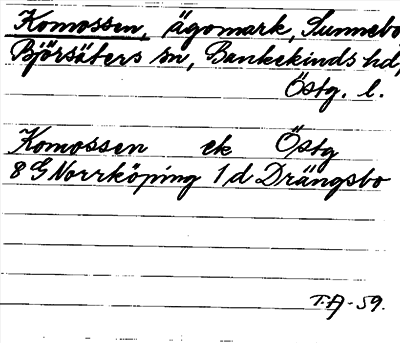 Komossen, ägomark, Sunnebo
Björsäters sn, Bankekinds hd,
Östg. l.
Komossen ek Östg
8 G Norrköping 1 d Drängsbo
T.A-59.